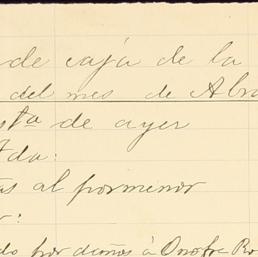 de caja de la
del mes de Abr
sta de ayer
da:
as al pormenor
r:
do por daños á Onofre Ro